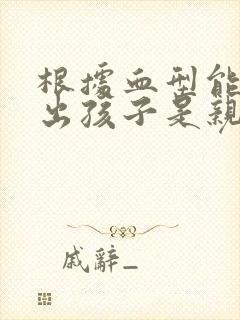 根據血型能
出孩子是親
戚辭_